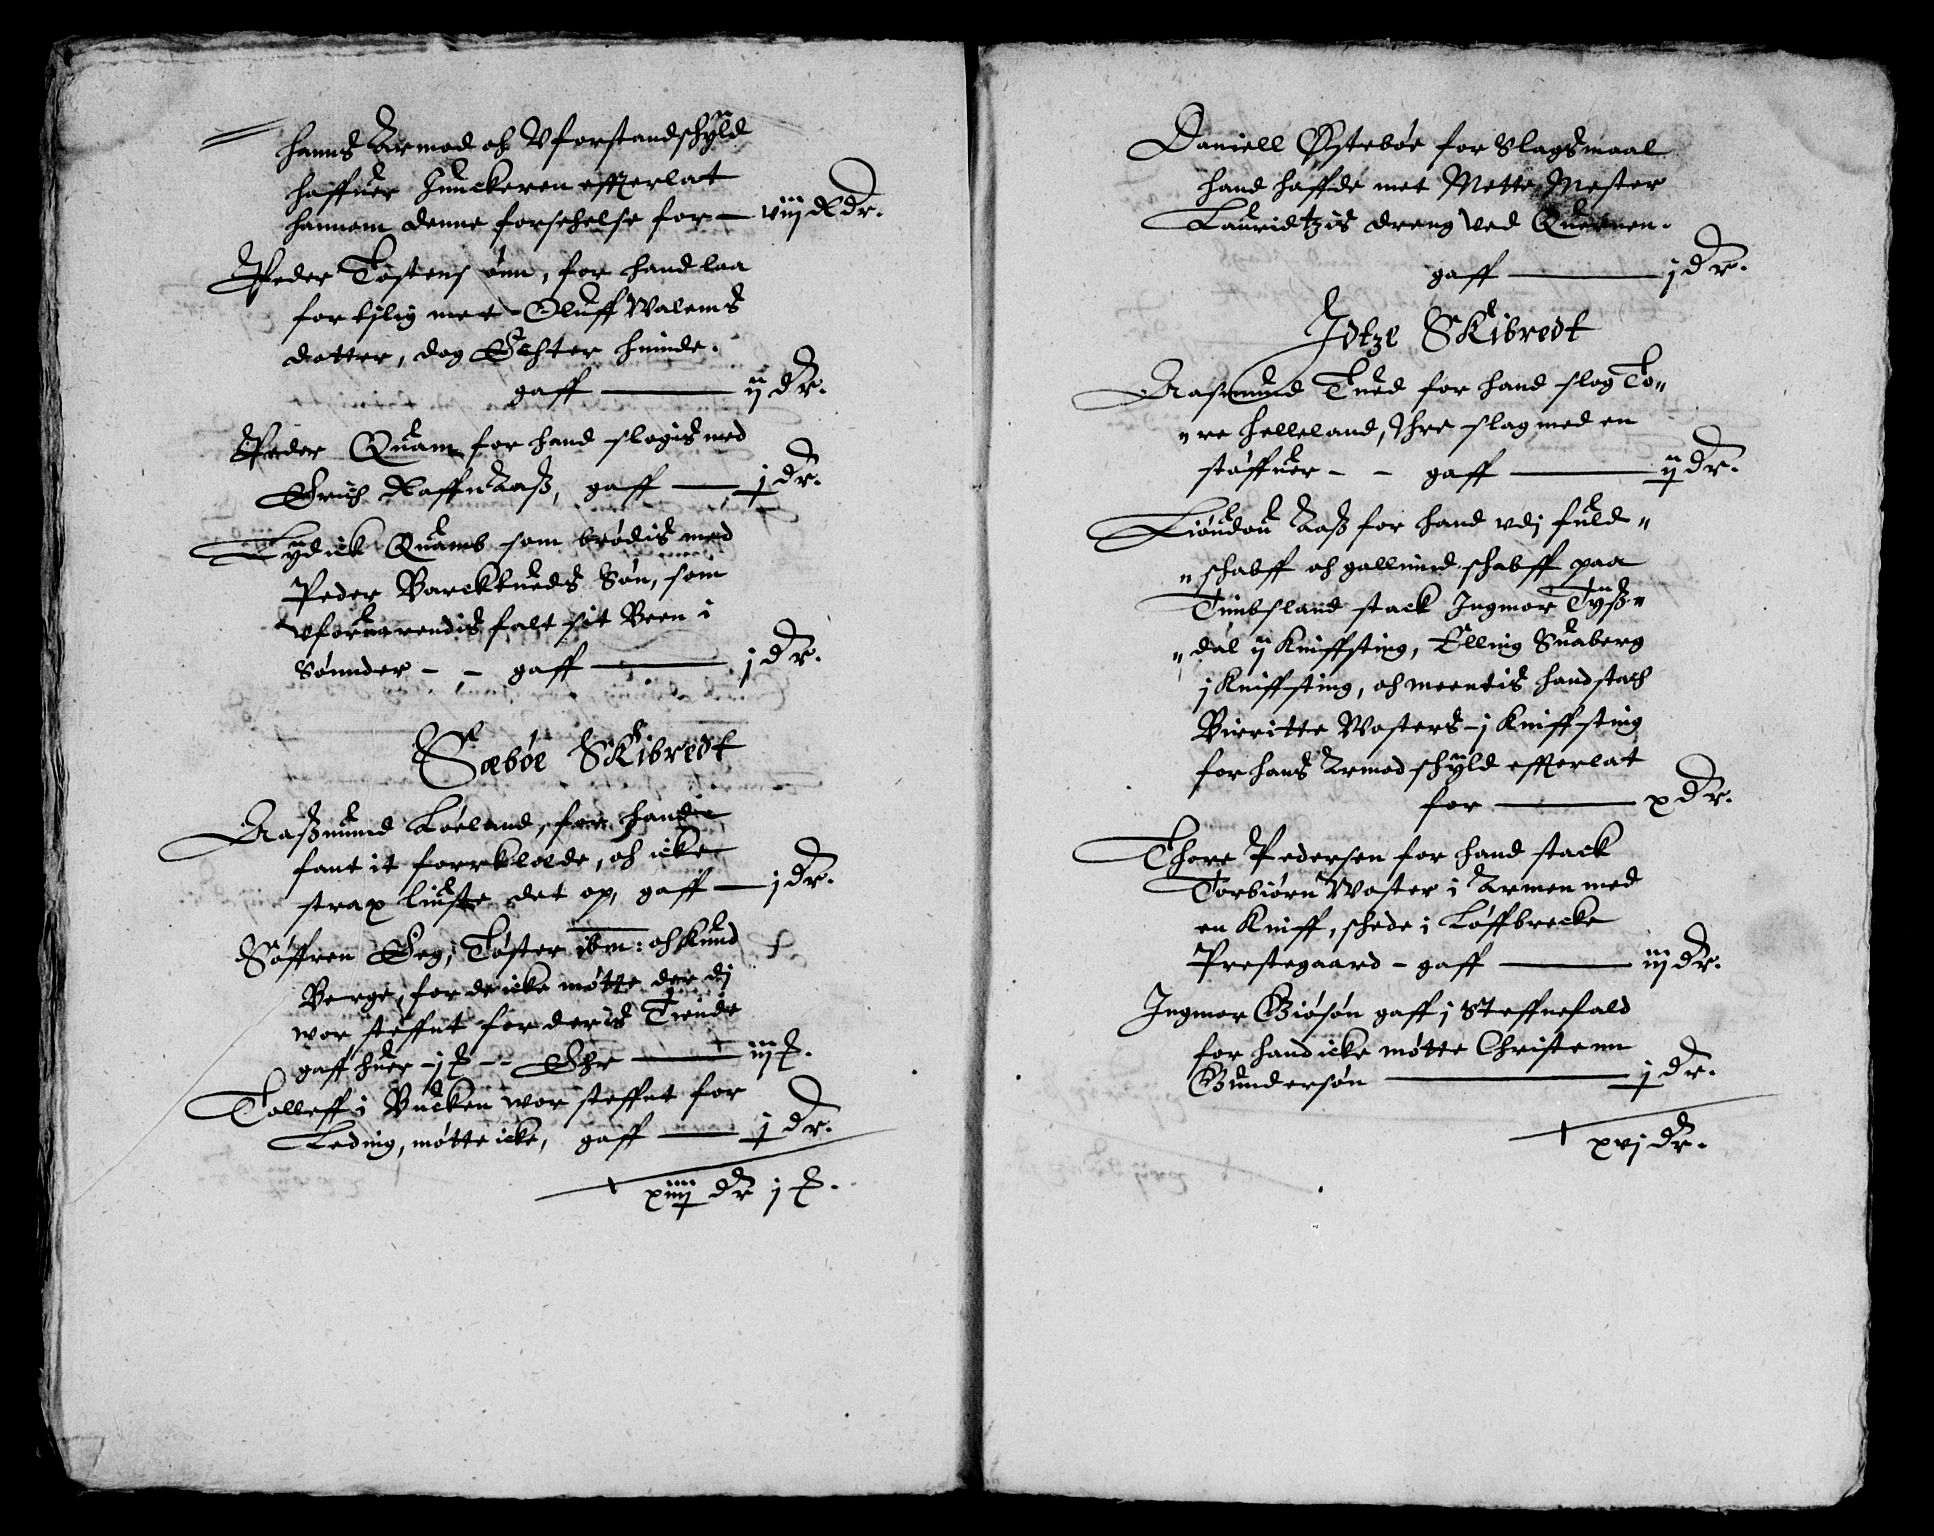 hanns Armod och Vforstandschÿld
haffuer Junckeren efterlat
hannem denne forsehelse for — viij dr.
Peder Tostens sönn, for hand laa
for tjlig met Oluff Walems
datter, dog Echter huinde.
gaff — ij dr.
Peder Quam for hand slogis med
Erich Raffn Aaß, gaff — j dr.
Tÿdick Quamb som brödis med
Peder Barckkueds Sön, som
vforuarendis falt sit Been i
Sönnder - - gaff — j dr.
Sæböe Skibredt
Aaßmund Löeland, for hand
fant it forrklæde, och icke
strax liuste det op, gaff — j dr.
Söffren Eeg, Töster ibm: och Knud
Berge, for de icke mötte der dj
wor steffnt for deris Tiende
gaff huer - j ß - - Ehr — iij ß.
Tolleff i Backen wor steffnt for
Leding, mötte icke, gaff — j dr.
xiiij dr j ß.
Daniell Östeböe for Slagsmaal
hand haffde met Mette, Mester
Lauridtzis dreng ved Quernen.
gaff — j dr.
Jdtze Skibredt
Aasmund Tued for hand slog To„
„re Helleland, Thre slag med en
stöffuer - - gaff — ij dr.
Liöudou Aaß for hand vdj fuld„
„schabff och gallnind schabff paa
Timbsland stack Ingmor Tÿß„
„dal ij Kniffsting, Elling Suaberg
j Kniffsting, och meentis hand stach
Birritte Wosters - j Kniffsting
for hans Armod schÿld efterlat
for — x dr.
Thore Pedersen for hand stack
Torbiörn Woster i Armen med
en Kniff, schede i Löffbrecke
Prestegaard - gaff — iij dr.
Ingmor Giösön gaff j Steffnefald
for hand icke mötte Christenn
Gundersön — j dr.
xvj dr.